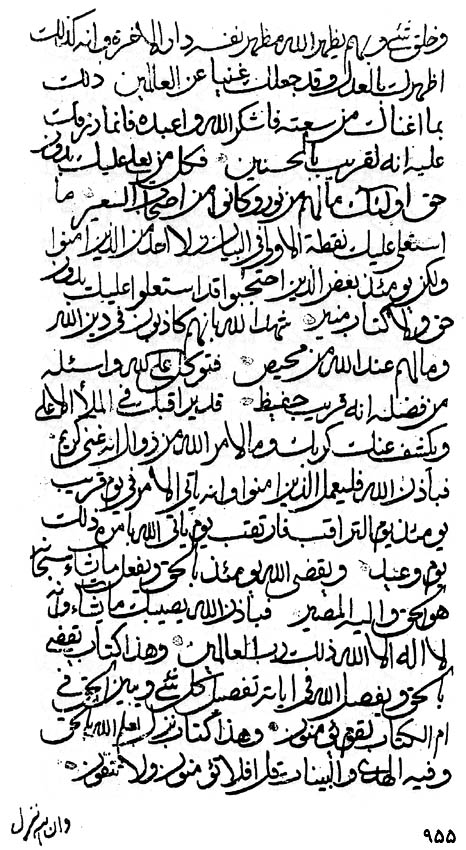 وخلق شئ وبهم يظهر الله مظهر نفسه دار الاخرة وانه كذلك
اظهرك بالعدل وقد جعلك غنيا عن العالمين ذلك
بما اغناك من سعته فاشكر الله واعبده فانما
عليه انه لقريب بالمحسنين فكل من يعلو عليك بدون
حق اولئك ما لهم من نور وكانوا من اصحاب السعير ما
استعلى عليك نقطة الاولى في البيان ولا احد من الذين امنوا
ولكن يومئذ بعض الذين احتجبوا قد استعلوا عليك بدون
حق ولا كتاب منير شهد الله بانهم كاذبون في دين الله
وما لهم عند الله من محيص فتوكل على الله واسئله
من فضله انه قريب حفيظ قل ان اقبلت في الملأ الاعلى
ويكشف عنك كربك وما الامر الله من زوال انه غني كريم
فباذن الله فليعمل الذين امنوا وانه ياتي الامر في يوم قريب
يومئذ يوم التراقب فارتقب يوم ياتي الله بامره ذلك
يوم وعيد ويقضي الله يومئذ بالحق ويفعل ما يشاء سبحانه
هو الحق واليه المصير فباذن الله يصيبك ما يشاء وانه
لا اله الا الله ذلك رب العالمين وهذا كتاب يقضي
بالحق ويفصل الله في اياته تفصيل كل شئ ويبين الحق في
ام الكتاب لقوم يؤمنون وهذا كتاب نزل بعلم الله بالحق
وفيه الهدى والبينات قل افلا تؤمنون ولا تتقون
وان لم نزل
٩٥٥